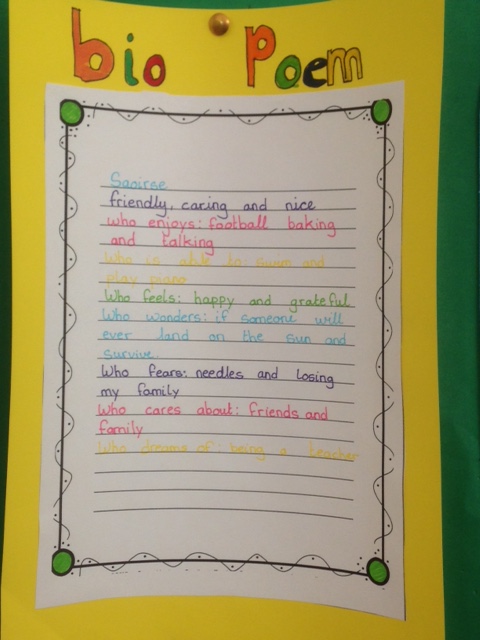 bio Poem
Saoirse
friendly, caring and nice
who enjoys: football baking
and talking
Who is able to: swim and
play piano
Who feels: happy and grateful
Who wonders: if someone will
ever land on the sun and
survive.
Who fears: needles and losing
my family
Who cares about: friends and
family
Who dreams of: being a teacher